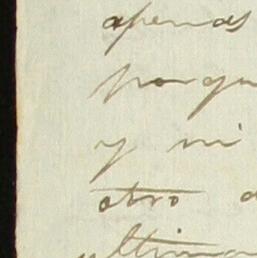 apenas
porqu
y mi
otro a
ultima